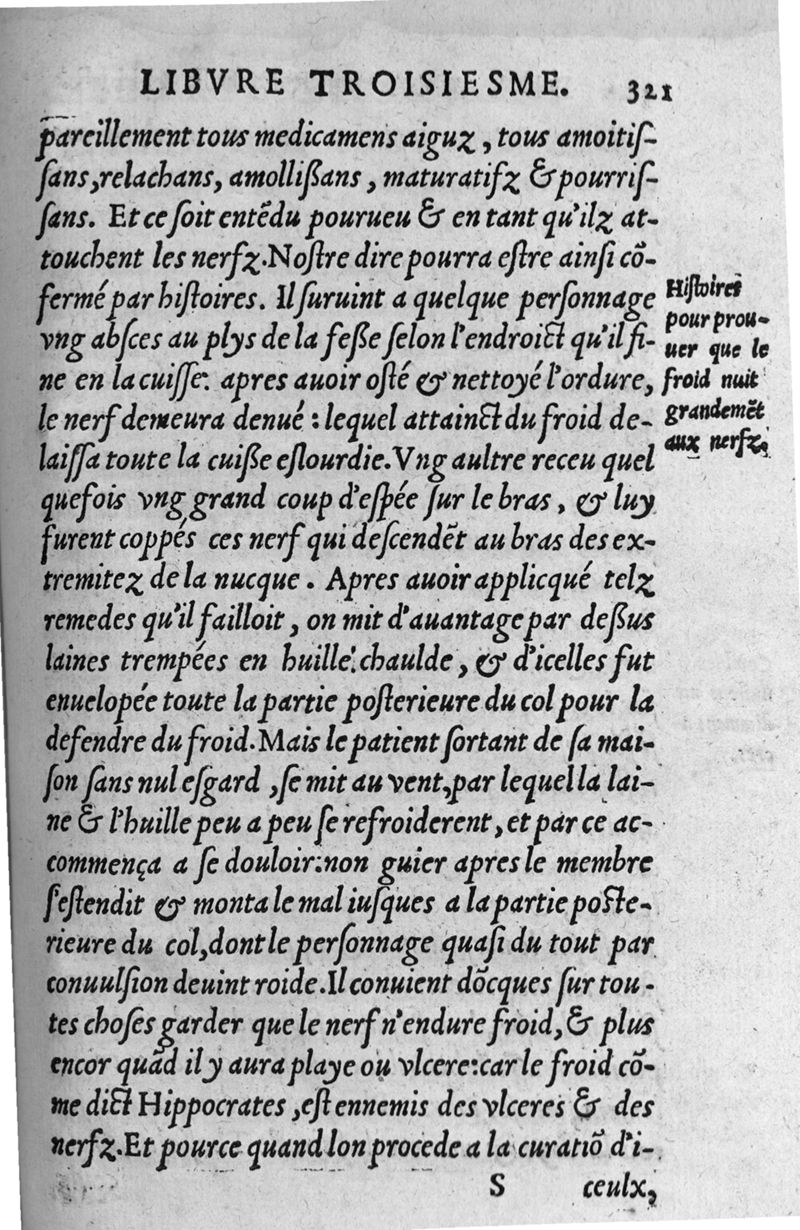 LIBVRE TROISIESME. 321
pareillement tous medicamens aiguz, tous amoitiſ-
ſans, relachans, amollißans, maturatifz & pourriſ-
ſans. Et ce ſoit entẽdu pourueu & en tant qu'ilz at-
touchent les nerfz. Noſtre dire pourra eſtre ainſi cõ-
fermé par hiſtoires. Il ſuruint a quelque perſonnage
vng abſces au plys de la feße ſelon l'endroict qu'il fi-
ne en la cuiſſe: apres auoir oſté & nettoyé l'ordure,
le nerf demeura denué: lequel attainct du froid de-
laiſſa toute la cuiße eſlourdie. Vng aultre receu quel
quefois vng grand coup d'eſpée ſur le bras, & luy
furent coppés ces nerf qui deſcendẽt au bras des ex-
tremitez de la nucque. Apres auoir applicqué telz
remedes qu'il failloit, on mit d'auantage par deßus
laines trempées en huille chaulde, & d'icelles fut
enuelopée toute la partie poſterieure du col pour la
defendre du froid. Mais le patient ſortant de ſa mai-
ſon ſans nul eſgard, ſe mit au vent, par lequel la lai-
ne & l'huille peu a peu ſe refroiderent, et par ce ac-
commença a ſe douloir: non guier apres le membre
ſeſtendit & monta le mal iuſques a la partie poſte-
rieure du col, dont le perſonnage quaſi du tout par
conuulſion deuint roide. Il conuient dõcques ſur tou-
tes choſes garder que le nerf n'endure froid, & plus
encor quãd il y aura playe ou vlcere: car le froid cõ-
me dict Hippocrates, eſt ennemis des vlceres & des
nerfz. Et pource quand lon procede a la curatiõ d'i-
S ceulx,
Hiſtoires
pour prou-
uer que le
froid nuit
grandemẽt
aux nerfz.